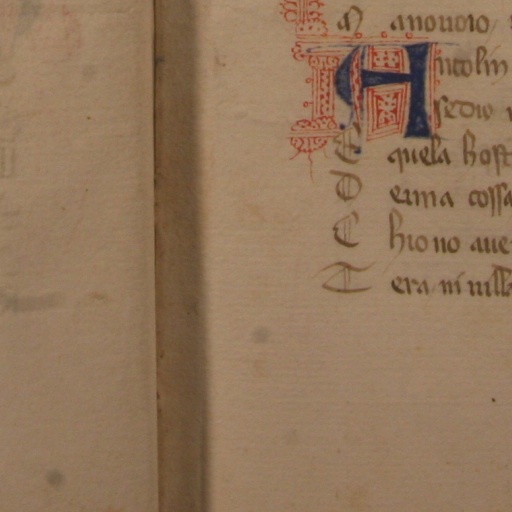 M anovoio
Antolin
sedio
E quela host
D erma cossa
C hio no aue
T era ni uilla